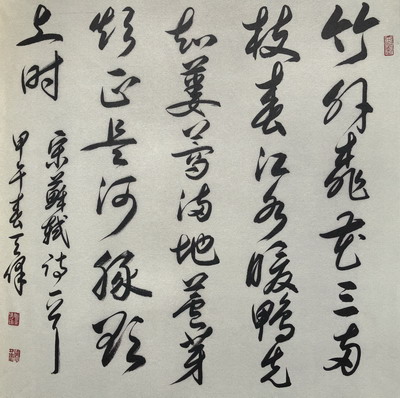 竹外桃花三两
枝春江水暖鴨先
知蔞蒿满地蘆芽
短正是河豚欲
上时
宋蘇軾诗一首
甲午春